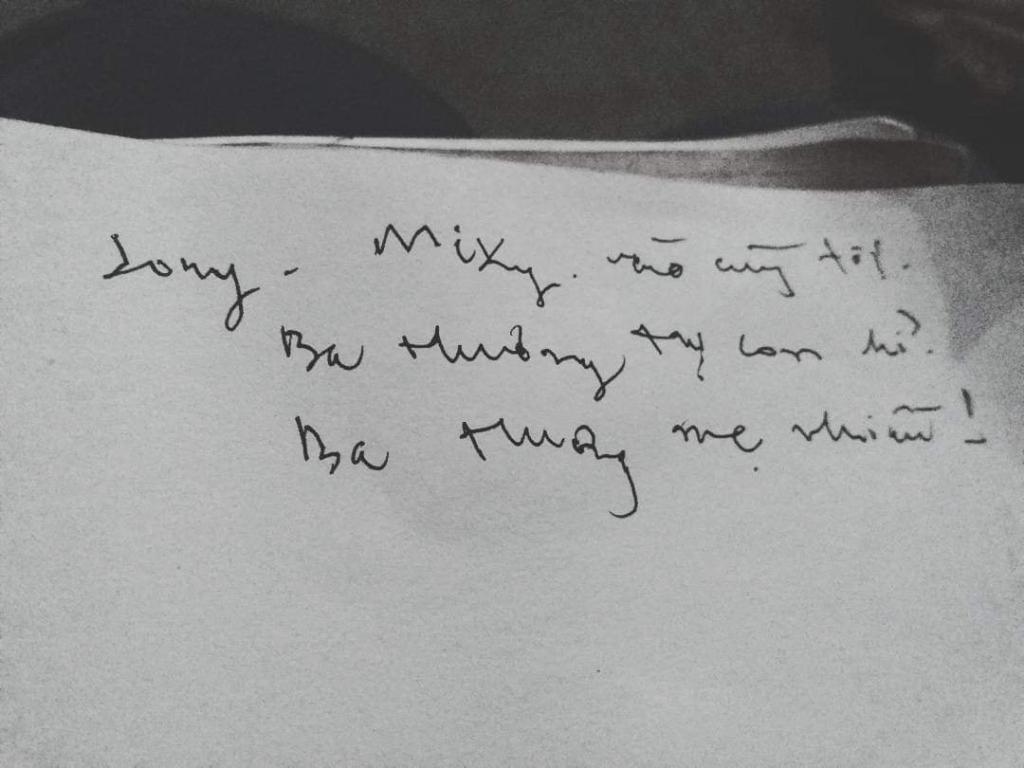 Long - MiXy. nào cũng tốt.
Ba thương tụi con hỉ.
Ba thương mẹ nhiều!